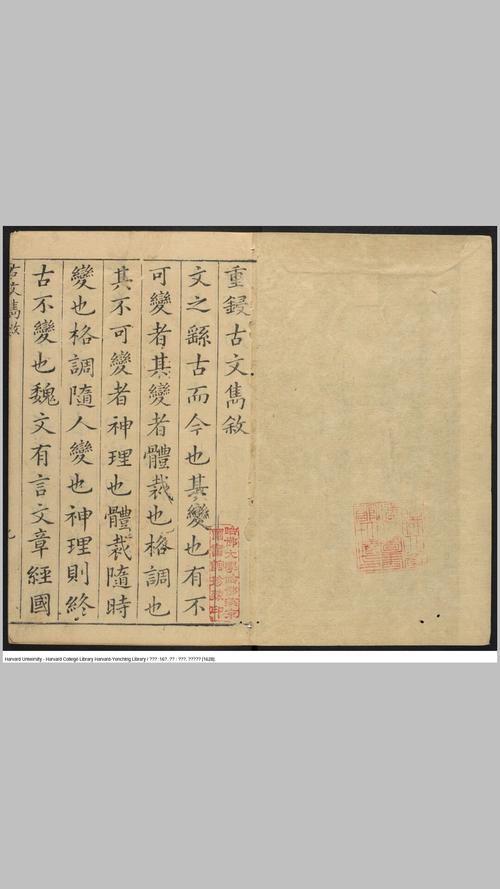 重鋟古文雋敘
文之繇古而今也其變也有不
可變者其變者體裁也格調也
其不可變者神理也體裁隨時
變也格調隨人變也神理則終
古不變也魏文有言文章經國
古文雋敘
哈佛大學哈佛燕京
圖書館珍藏印
Harvard University - Harvard College Library Harvard-Yenching Library / ???: 16?. ?? : ???, ????? [1628].